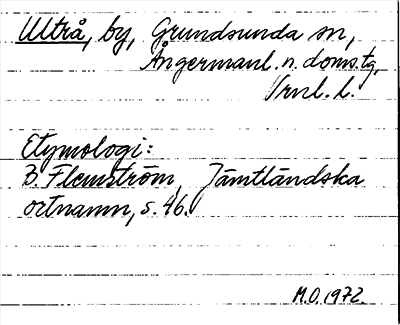 Ultrå, by, Grundsunda sn,
Ångermanl. n. doms.tg,
Vrnl. l.
Etymologi:
B. Flemström, Jämtländska
ortnamn, s. 46.
M.O. 1972